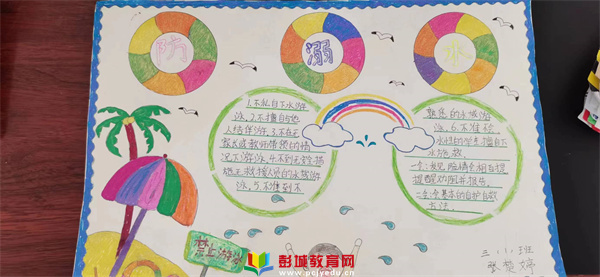 防 溺 水
1.不私自下水游
泳、2.不擅自与他
人结伴游、3.不在无
家长或教师带领的情
况下游泳、4.不到无安全措
施无救援人员的水域游
泳、5.不准到不
熟悉的水域游
泳、6.不准不会
水性的学生擅自下
水施救、
提醒劝阻并报告。
一会:会基本的自护自救
方法。
禁止游泳
三、(1)班
彭城教育网
www.pcjyedu.cn